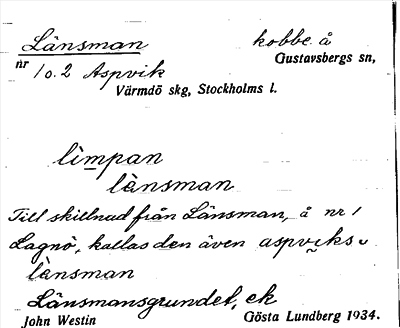 Länsman kobbe å
nr 1 o. 2 Aspvik Gustavsbergs sn,
Värmdö skg, Stockholms l.
limpan
länsman
Till skillnad från Länsman, å nr 1
Lagnö, kallas den även aspviks
länsman
Länsmansgrundet, ek
John Westin Gösta Lundberg 1934.